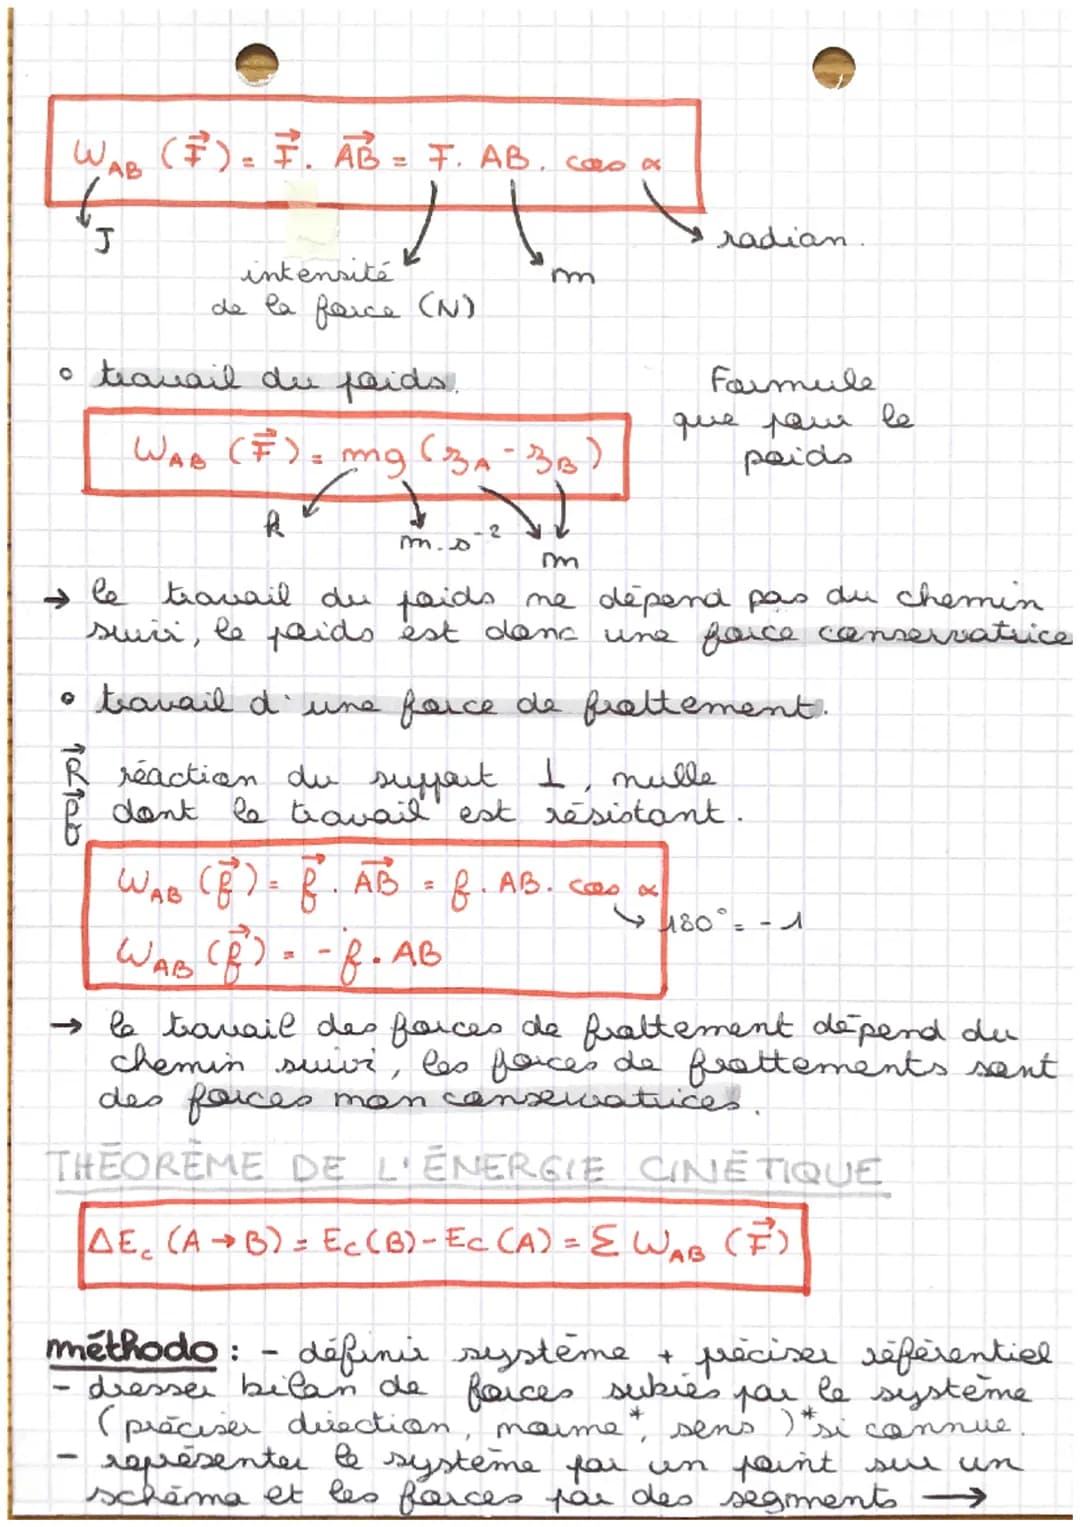 W_AB (F⃗) = F⃗ . AB⃗ = F . AB . cos α
J
radian.
intensité
m
de la force (N)
° travail du poids.
Formule
que pour le
poids
W_AB (F⃗) = mg (z_A - z_B)
k
m.s⁻²
m
→ le travail du poids ne dépend pas du chemin
suivi, le poids est donc une force conservatrice
° travail d'une force de frottement.
R⃗ réaction du support ⊥, nulle
f⃗ dont le travail est résistant.
W_AB (f⃗) = f⃗ . AB⃗ = f . AB . cos α
180° = -1
W_AB (f⃗) = - f . AB
→ le travail des forces de frottement dépend du
chemin suivi, les forces de frottements sont
des forces non conservatrices.
THÉORÈME DE L'ÉNERGIE CINÉTIQUE
ΔEc (A → B) = Ec(B) - Ec(A) = Σ W_AB (F⃗)
méthodo : - définir système + préciser référentiel
- dresser bilan de forces subies par le système
(préciser direction, norme*, sens) *si connue.
- représenter le système par un point sur un
schéma et les forces par des segments →